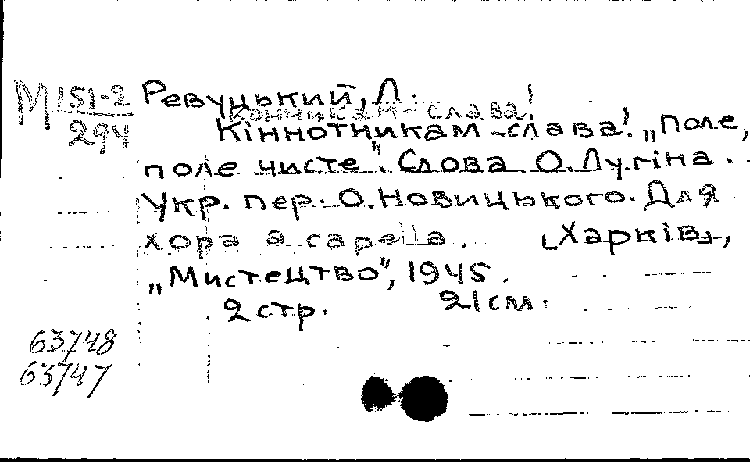 М 151-2
294
Ревуцький, Л.
Конникам-слава!
Кіннотникам-слава! „Поле,
поле чисте". Слова О. Лугіна.
Укр. пер. О. Новицького. Для
хора a capella. [Харків],
„Мистецтво", 1945.
2 стр. 21 см.
63748
63747